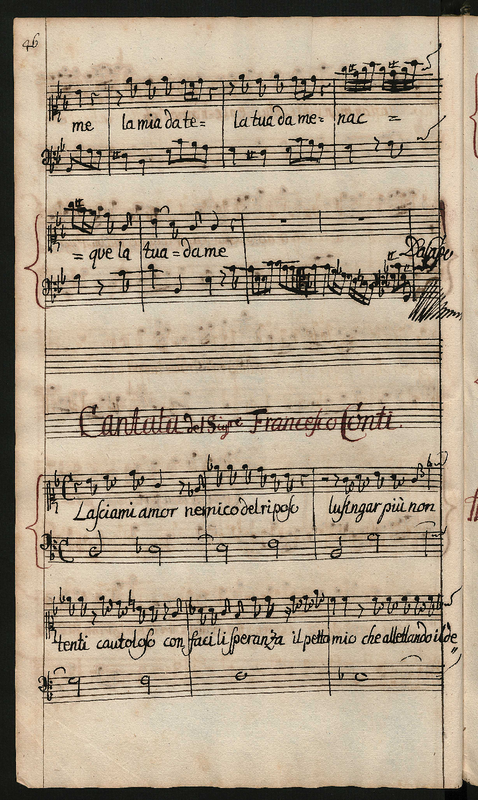 46
me la mia da te= la tua da me= nac =
= que la tua = da me
Da Capo
Cantata del Sigre Francesco Conti
Lasciami amor nemico del riposo lusingar più non
tenti cautoloso con facili speranza il petto mio che allettando il de